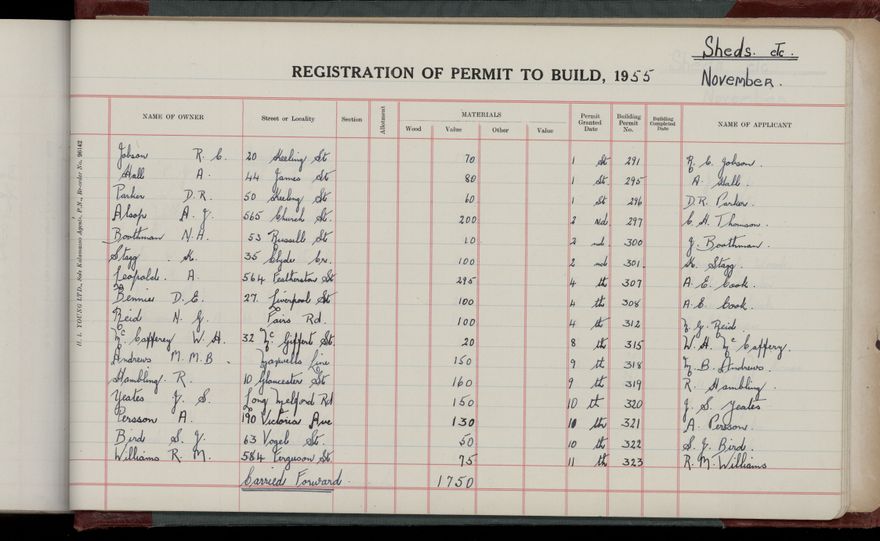 Sheds. etc.
REGISTRATION OF PERMIT TO BUILD, 1955
November.
NAME OF OWNER Street or Locality Section Allotment MATERIALS Permit Granted Date Building Permit No. Building Completed Date NAME OF APPLICANT
Wood Value Other Value
Jobson R. C. 20 Keeling St 70 1 st 291 R. C. Jobson.
Hall A. 44 James St 80 1 st. 295 A. Hall.
Parker D.R. 50 Keeling St 60 1 st 296 D.R. Parker.
Alsop A. J. 565 Church St. 200 2 nd. 297 C. H. Thomson.
Boothman N.A. 53 Russell St 10 2 nd 300 J. Boothman.
Stagg. K. 35 Clyde Cr. 100 2 nd 301. K. Stagg.
Leopold. A. 564 Featherston St 295 4 th 307 A. E. Cook.
Bennie D. E. 27. Liverpool St 100 4 th 308 A.E. Cook.
Reid N. G. Fairs Rd. 100 4 th 312 N. G. Reid.
McCafferey W. H. 32 McGiffert St 20 8 th 315 W. H. McCaffery.
Andrews M. M. B. Maxwells Line 150 9 th 318 M. B. Andrews.
Hambling. R. 10 Gloucester St 160 9 th 319 R. Hambling.
Yeates J. S. Long Melford Rd 150 10 th 320 J. S. Yeates
Persson A. 190 Victoria Ave 130 10 th 321 A. Persson.
Bird S. J. 63 Vogel St. 50 10 th 322 S. J. Bird.
Williams R. M. 584 Ferguson St 75 11 th 323 R. M. Williams
Carried Forward. 1750
H. L. YOUNG LTD., Sole Kalamazoo Agents, P.N., Re-order No. 96142